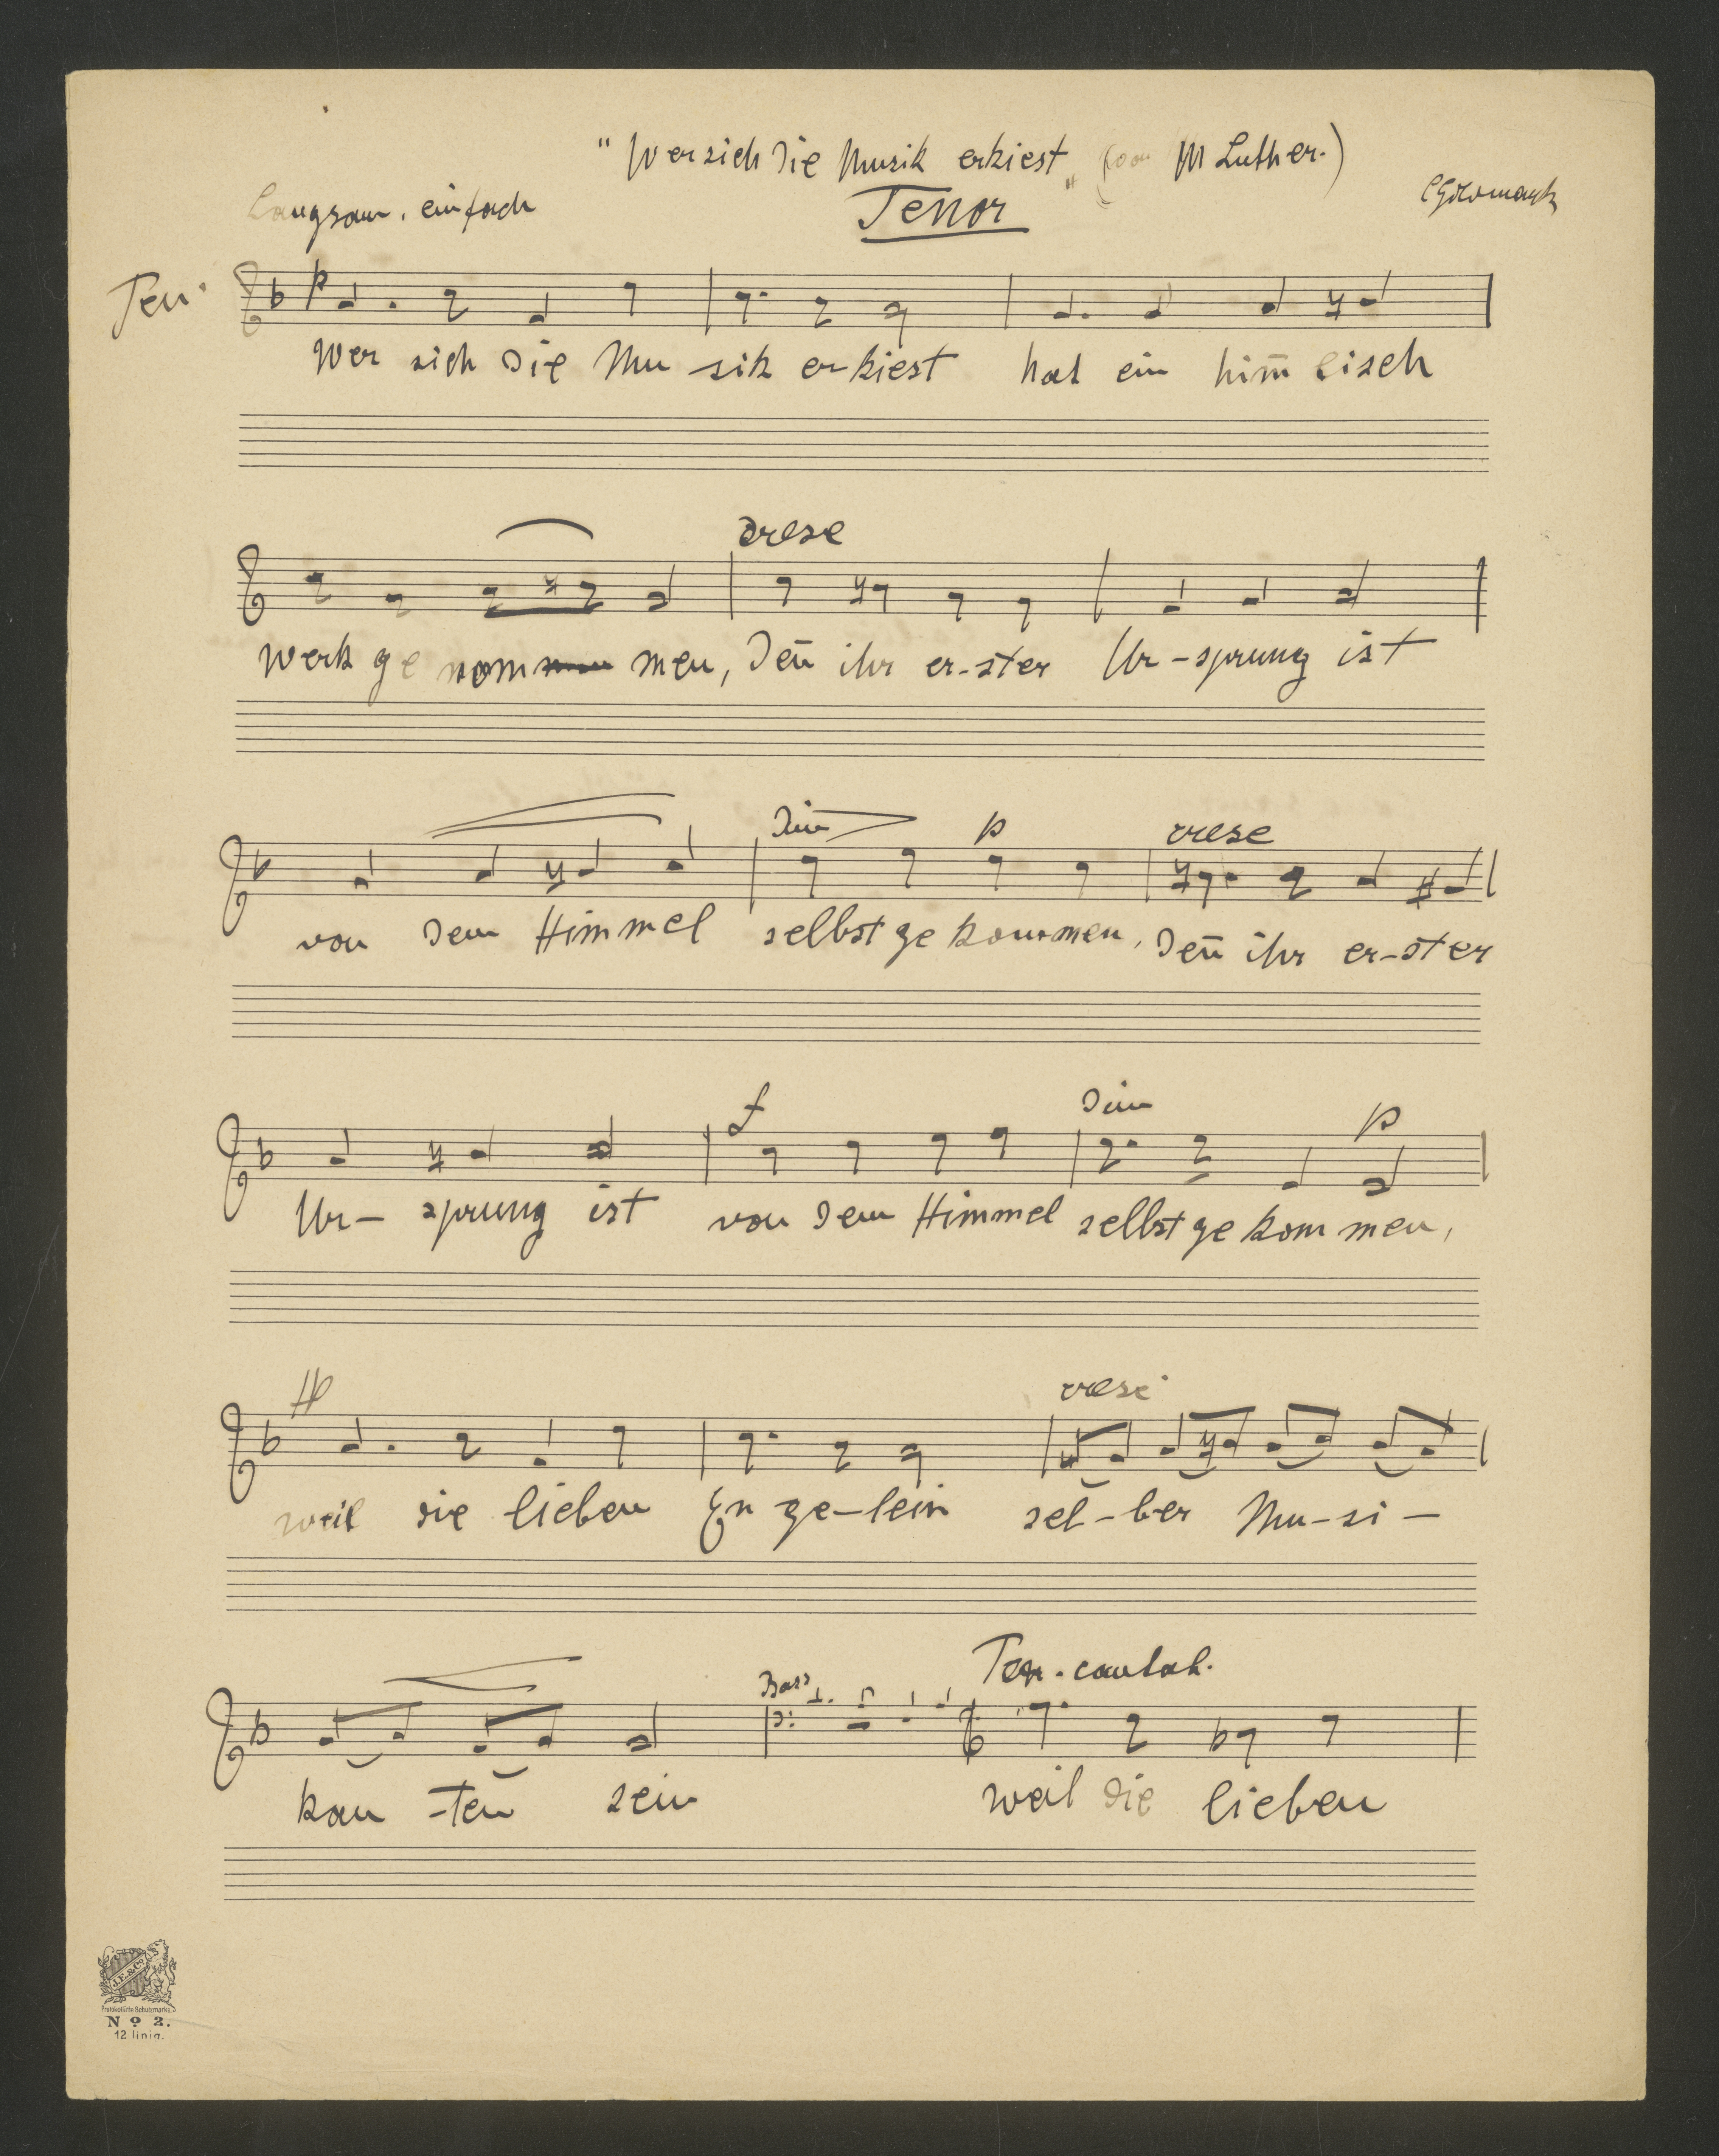 "Wer sich die Musik erkiest" (von M Luther.)
Langsam. einfach
Tenor
CGoldmark
Ten.
p
Wer sich die Mu-sik er-kiest hat ein him̄lisch
cresc
Werk ge nom men, Den̄ ihr er-ster Ur-sprung ist
dim p cresc
von dem Himmel selbst ge kommen, Den̄ ihr er-ster
f dim p
Ur-sprung ist von dem Himmel selbst ge kom men,
cresc.
weil die lieben En ge-lein sel-ber Mu-si-
Bass
Ten. cantab.
kan-ten sein weil die lieben
J.E.&Co.
Protokollirte Schutzmarke.
No 2.
12 linig.